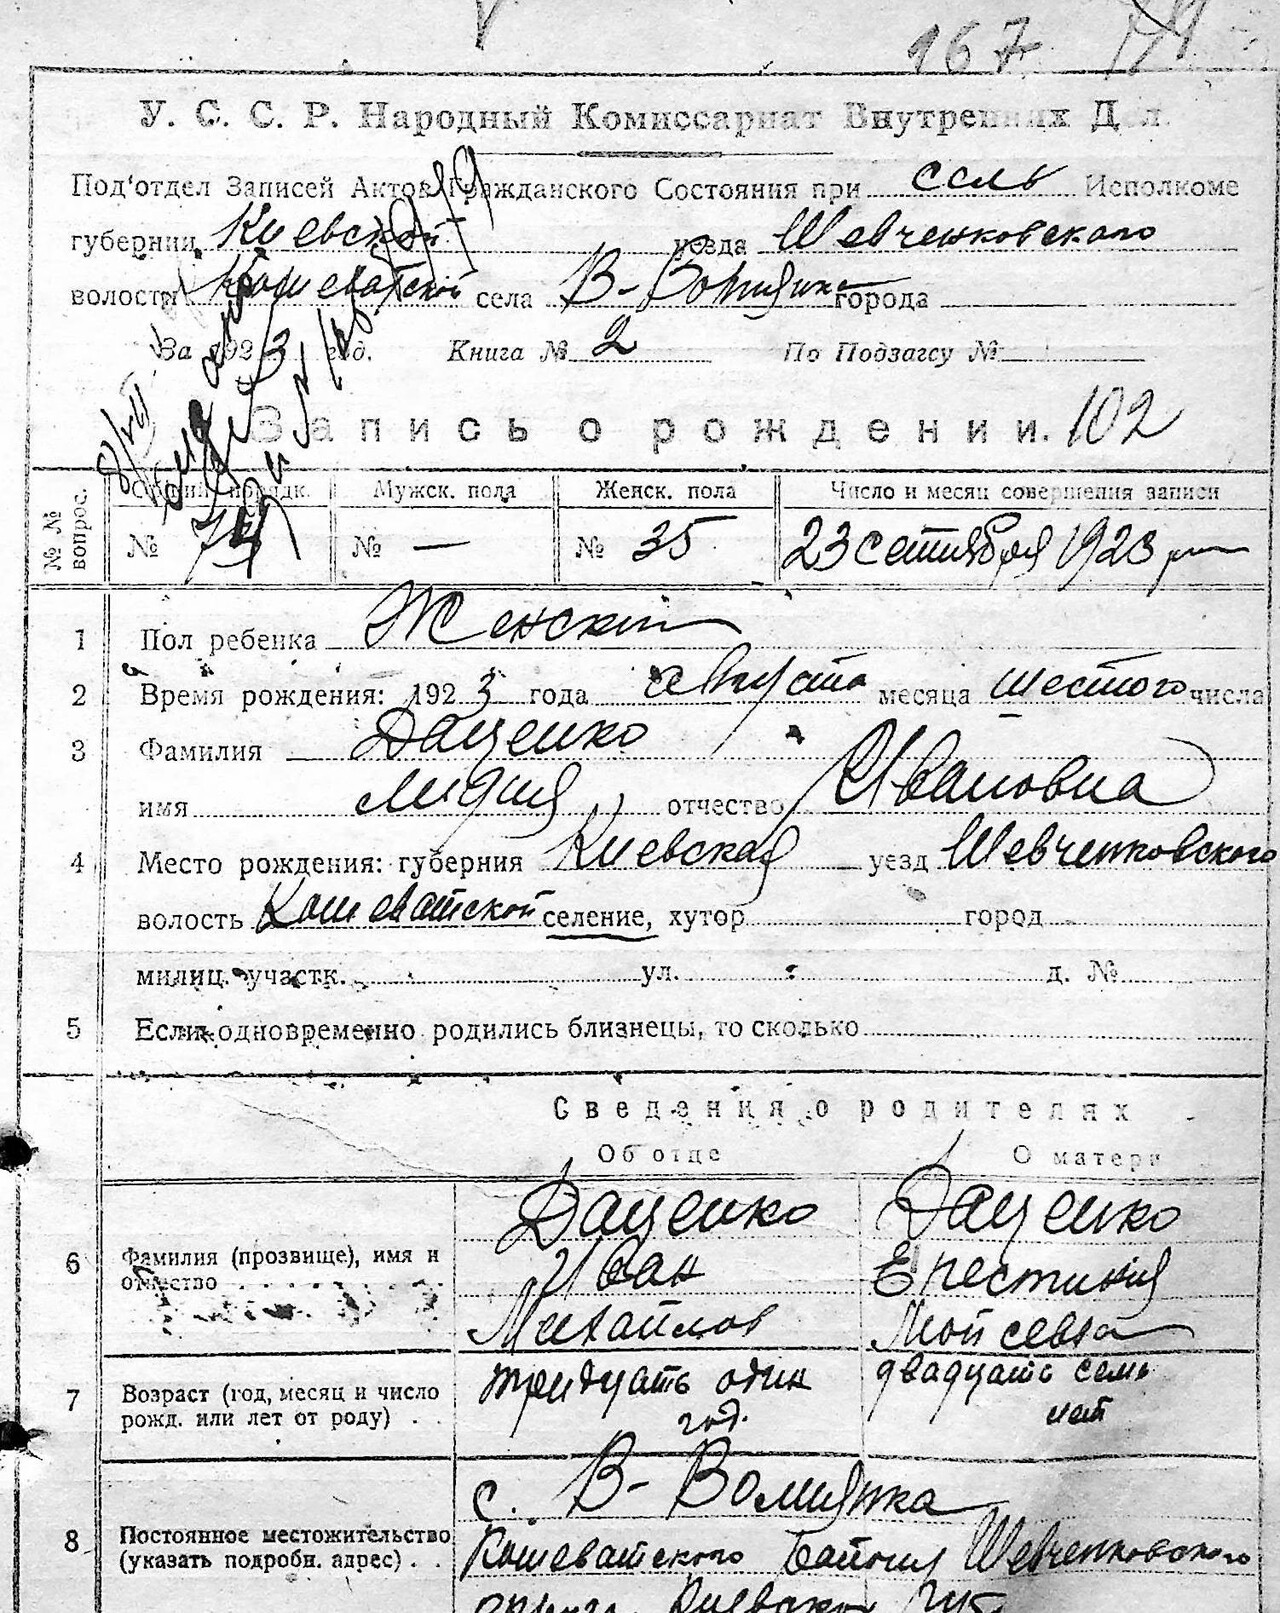 167
У. С. С. Р. Народный Комиссариат Внутренних Дел.
Под'отдел Записей Актов Гражданского Состояния при сель Исполкоме
губернии Киевской уезда Шевченковского
волости Кошеватской села В- города
За 1923 год. Книга № 2 По Подзагсу №
Запись о рождении. 102
№ № вопрос.
Общий порядк. Мужск. пола Женск. пола Число и месяц совершения записи
№ 74 № — № 35 23 сентября 1923
1 Пол ребенка Женский
2 Время рождения: 1923 года августа месяца шестого числа
3 Фамилия Даценко
имя Лидия отчество Ивановна
4 Место рождения: губерния Киевская уезд Шевченковского
волость Кошеватской селение, хутор город
милиц. участк. ул. д. №
5 Если одновременно родились близнецы, то сколько
Сведения о родителях
Об отце О матери
6 Фамилия (прозвище), имя и отчество . . . .
Даценко Даценко
Иван Ерестиния
Михайлов Мойсевна
7 Возраст (год, месяц и число рожд. или лет от роду) . .
тридцать один двадцать семь
год. лет
8 Постоянное местожительство (указать подробн. адрес) . .
с. В-
Кошеватского района Шевченковского
округа Киевской губ